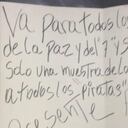 Va para todos lo
de La Paz y del "7" y S
solo una muestra de la
a todos los "piratas"!
Presente!